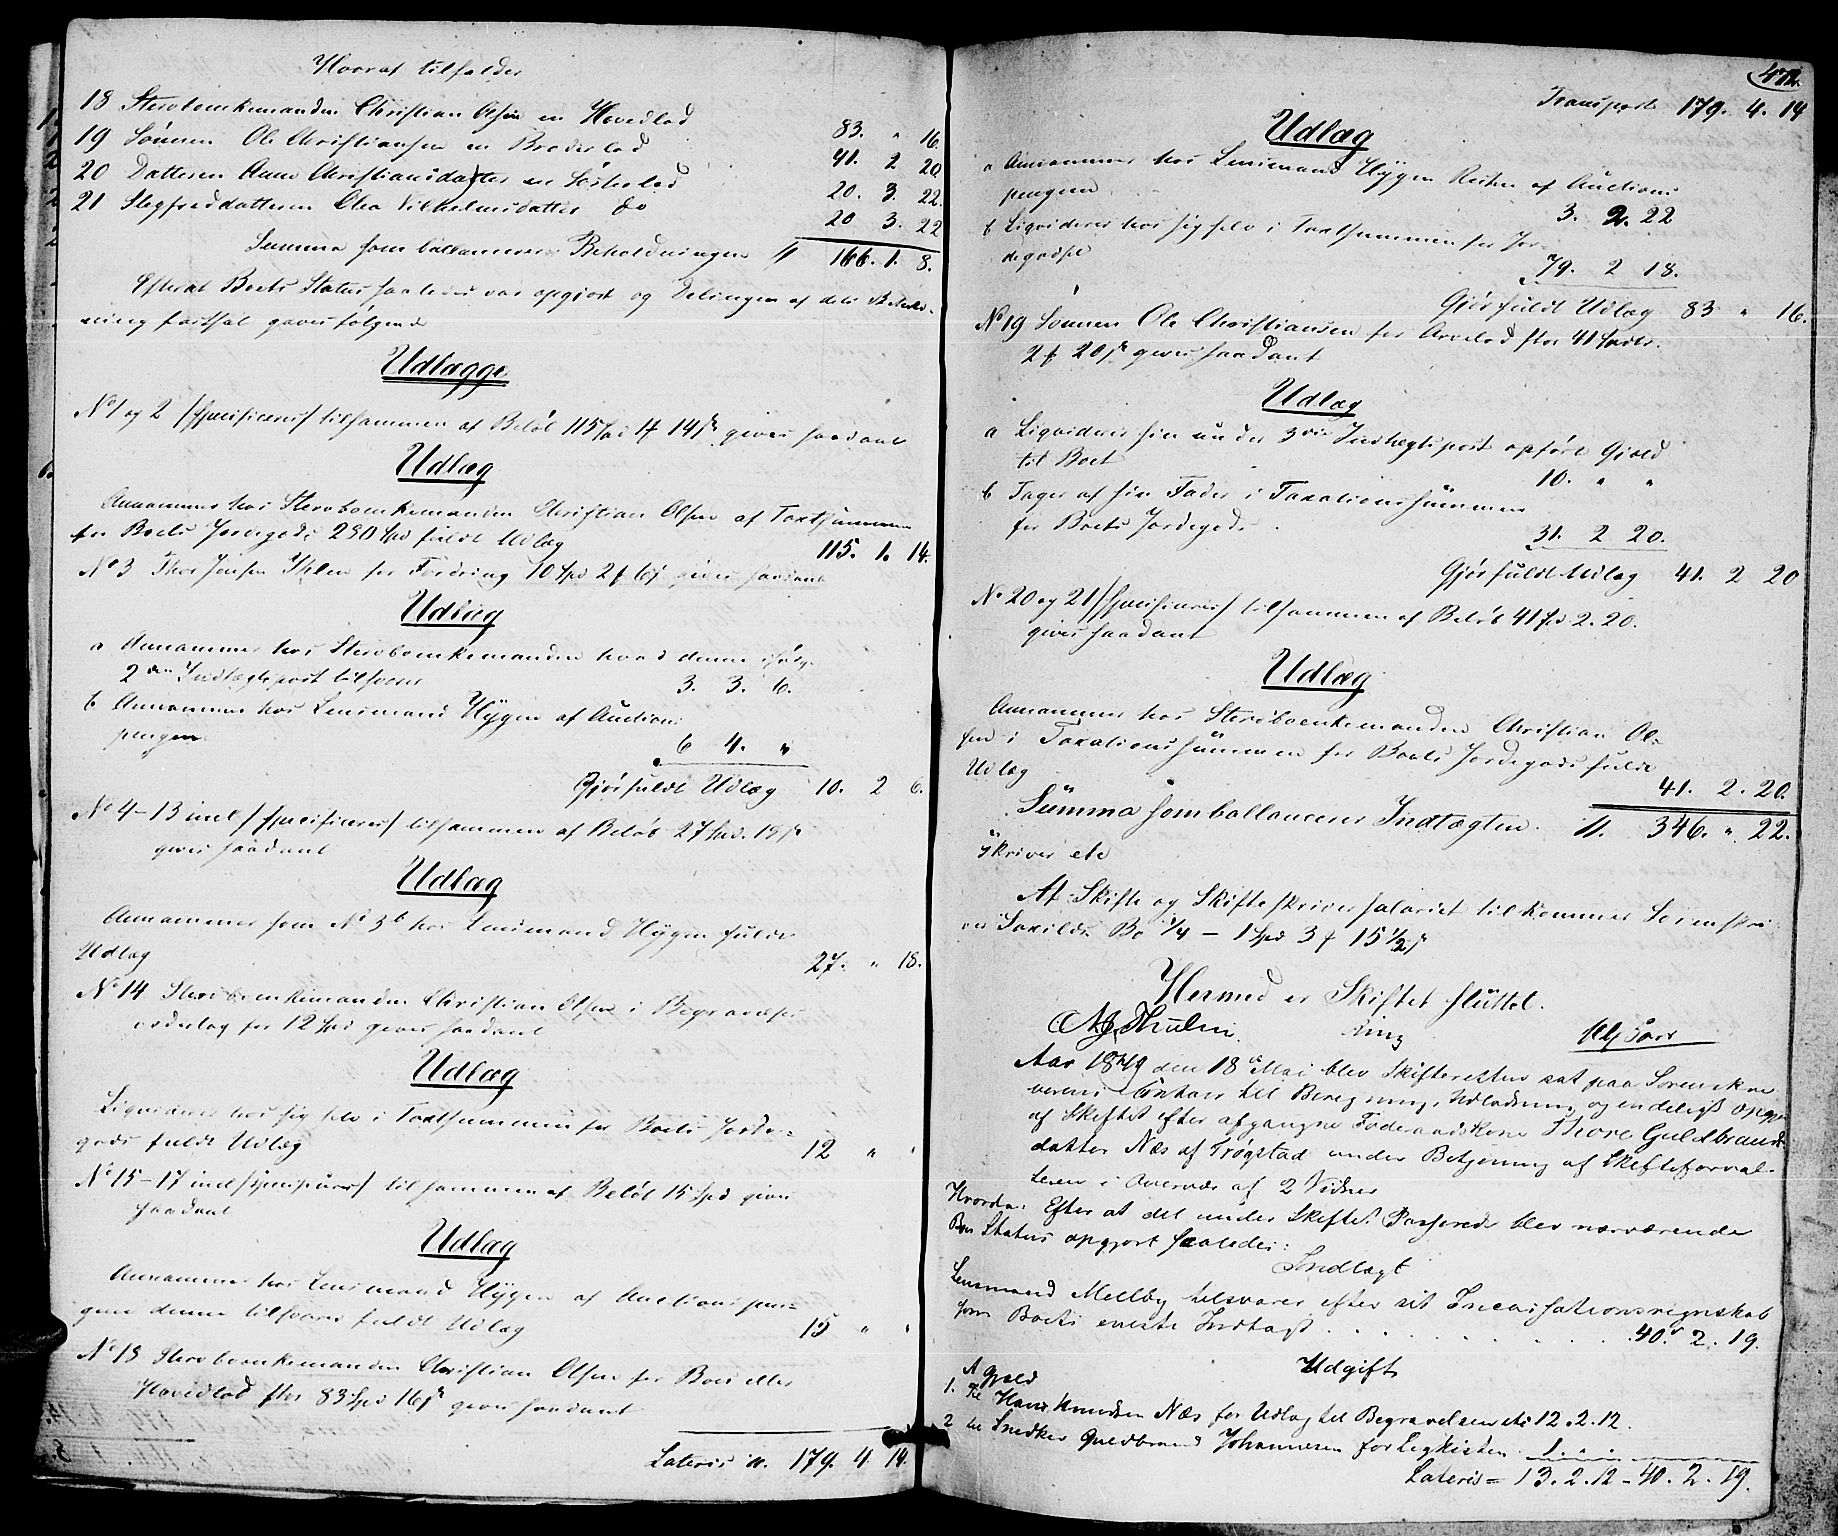 Hvoraf tilfalder
18 Stervboenkemanden Christian Olsen en Hovedlod 83. " 16.
19 Sønnen Ole Christiansen en Broderlod 41. 2 20
20 Datteren Anne Christiansdatter en Søsterlod 20. 3. 22.
21 Stegfreddatteren Vilhelmsdatter do 20 3. 22
Summa som ballancerer Beholdningen // 166. 1. 8.
Efterat Boets Status saaledes var opgjort og Delingen af dets Behold-
ning fortsat gaves følgende
Udlægge
No 1 og 2 /specificeres/ tilsammen af Beløb 115 Spd 1 f 14 s gives saadant
Udlæg
Annammes hos Stervboenkemanden Christian Olsen af Taxtsummen
for Boets Jordegods 290 Spd fuldt Udlæg 115. 1. 14.
No 3 Thor Jensen for Fordring 10 Spd 2 f 6 s gives saadant
Udlæg
a Annammes hos Stervboenkemanden hvad denne ifølge
2den Indtægtspost tilsvarer 3. 3. 6.
b Annammes hos Lensmand Hÿgen af Auctions
pengene 6 4. "
Gjør fuldt Udlæg 10. 2 6.
No 4-13 incl /specificeres/ tilsammen af Beløb 27 Spd. 18 s
gives saadant
Udlæg
Annammes som No 3 b hos Lensmand Hÿgen fuldt
Udlæg 27. " 18.
No 14 Stervboenkemanden Christian Olsen i Begravelses
vederlag for 12 Spd gives saadant
Udlæg
Liqviderer hos sig selv i Taxtsummen for Boets Jorde-
gods fuldt Udlæg 12 " "
No 15-17 incl /specificeres/ tilsammen af Beløb 15 Spd gives
saadant
Udlæg
Annammes hos Lensmand Hÿgen af Auctions pen-
gene denne tilsvarer fuldt Udlæg 15 " "
No 18 Stervboenkemanden Christian Olsen for Boes eller
Hovedlod stor 83 Spd 16 s gives saadant
Lateris // 179. 4. 14.
472.
Transport 179. 4. 14
Udlæg
a Annammes hos Lensmand Hÿgen Resten af Auctions
pengene 3. 2. 22
b Liqviderer hos sig selv i Taxtsummen for Jor-
degodset 79. 2 18.
Gjør fuldt Udlæg 83 " 16.
No 19 Sønnen Ole Christiansen for Arvelod stor 41 Spdlr.
2 f 20 s gives saadant
Udlæg
a Liqviderer sin under 3die Indtægtspost opførte Gjæld
til Boet 10. " "
b Tager af sin Fader i Taxationssummen
for Boets Jordegods 31. 2 20.
Gjør fuldt Udlæg 41. 2 20
No 20 og 21 /specificeres/ tilsammen af Beløb 41 spd. 2. 20.
gives saadant
Udlæg
Annammes hos Stervboenkemanden Christian Ol-
sen i Taxationssummen for Boets Jordegods fuldt
Udlæg 41. 2. 20.
Summa som ballancerer Indtægten // 346. " 22.
skriver etc
Af Skifte og Skifteskriversalariet tilkommer Sorenskri-
ver Bo 1/4 - 1 Spd 3 f 15 1/2 s
Hermed er Skiftet sluttet.
Thulin. Ring
Aar 1849 den 18 Mai blev Skifteretten sat paa Sorenskri
verens Contoir til Beregning, Udlodning og endeligt Opgjør
af Skiftet efter afgangne Føderaadskone Thore Guldbrands
datter Næs af Trøgstad under Betjening af Skifteforval-
teren i Overvær af 2 Vidner
Hvorda: Efter at det under Skiftet Passerede blev nærværende
Boes Status opgjort saaledes:
Indtægt
Lensmand Mellby tilsvarer efter sit Incassationsregnskab
som Boets eneste Indtægt . . . . . . 40. 2. 19.
Udgift
A Gjæld
1. Til Hans Knudsen Næs for Udlæg til Begravelsen etc 12. 2. 12.
2 til Snedker Guldbrand Johannesen for Ligkisten 1. " "
Lateris = 13. 2. 12 - 40. 2. 19.